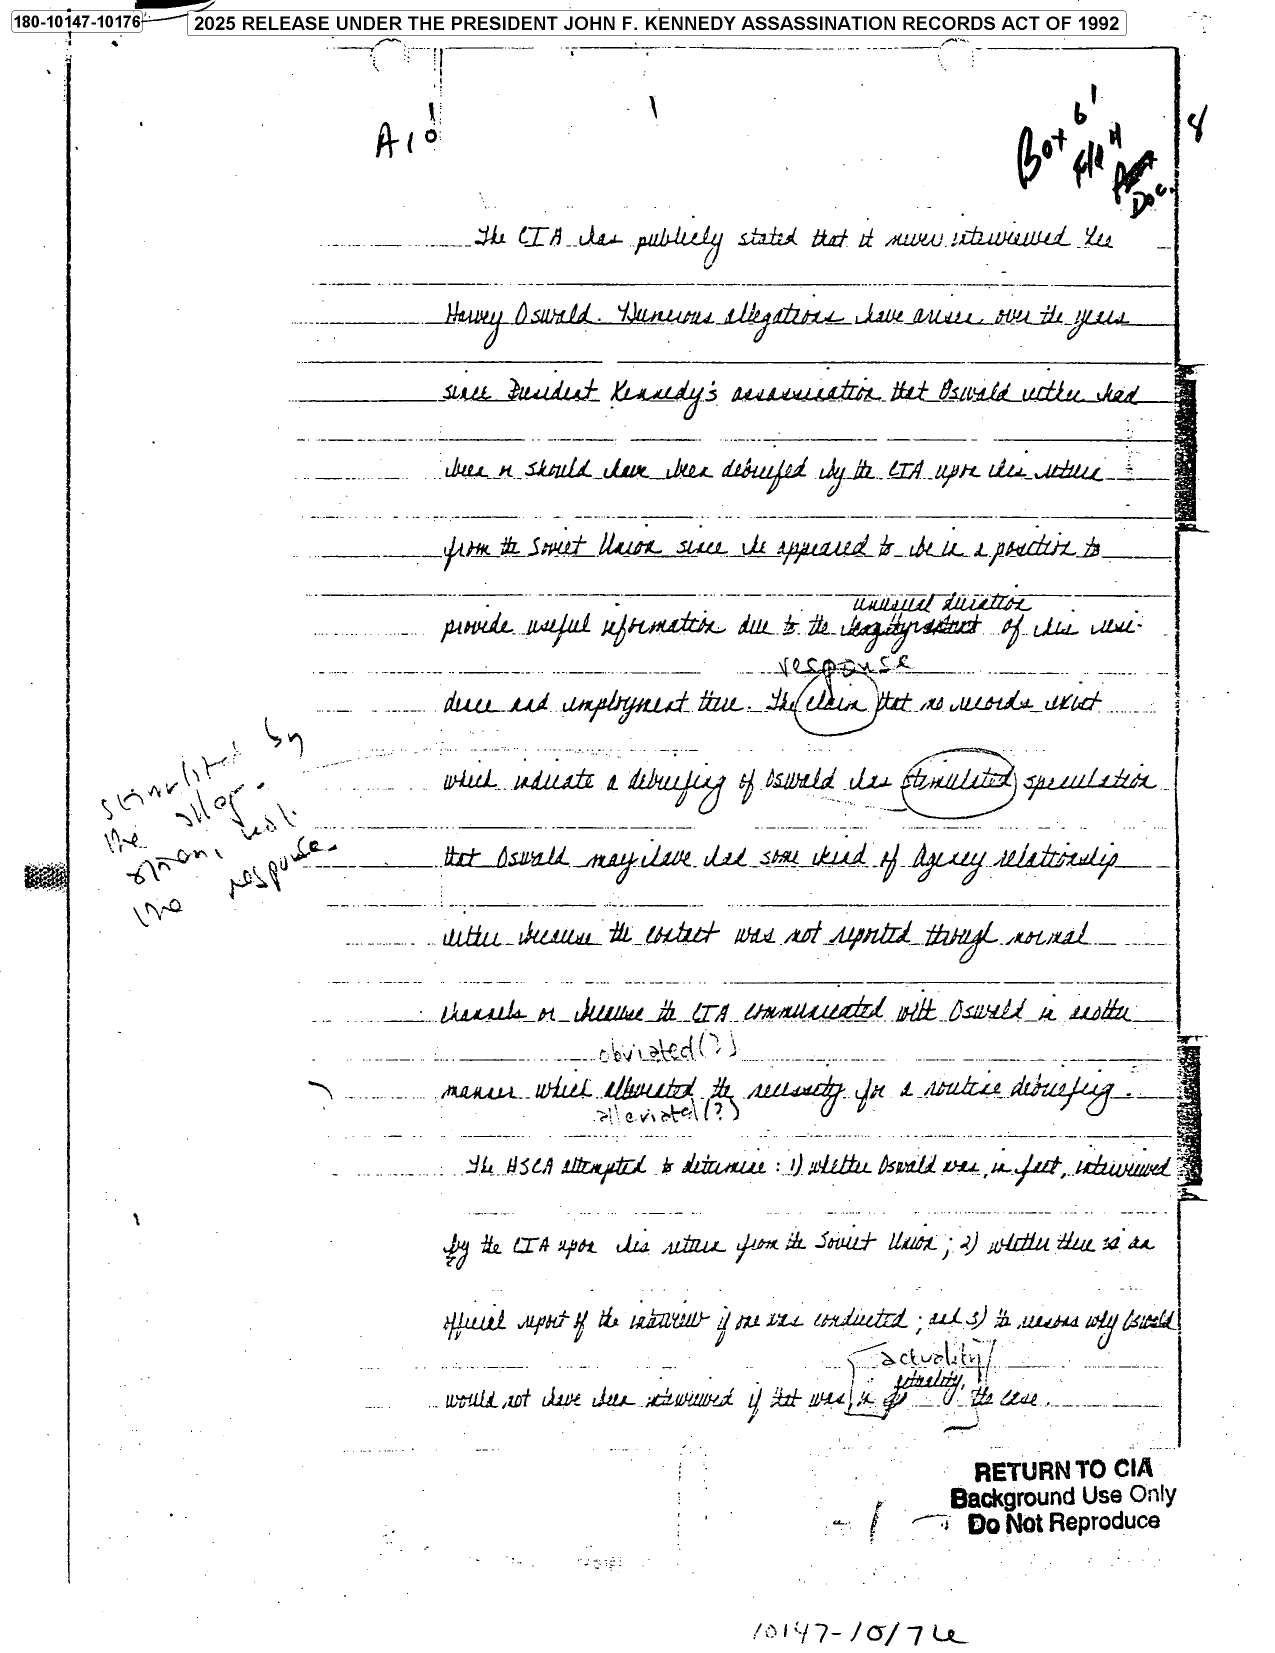 180-10147-10176
2025 RELEASE UNDER THE PRESIDENT JOHN F. KENNEDY ASSASSINATION RECORDS ACT OF 1992
A10
Box 6
8
File 4
Doc.
The CIA has publicly stated that it never interviewed Lee
Harvey Oswald. Numerous allegations have arisen over the years
since President Kennedy's assassination that Oswald either had
been or should have been debriefed by the CIA upon his return
from the Soviet Union since he appeared to be in a position to
unusual duration
provide useful information due to the of his resi-
response
dence and employment there. The claim that no records exist
which indicate a debriefing of Oswald has stimulated speculation
stimulated by
the allegation, not
the response.
that Oswald may have had some kind of Agency relationship
either because the contact was not reported through normal
channels or because the CIA communicated with Oswald in another
obviated(?)
manner which alleviated the necessity for a routine debriefing.
alleviated(?)
The HSCA attempted to determine: 1) whether Oswald was, in fact, interviewed
by the CIA upon his return from the Soviet Union; 2) whether there is an
official report of the interview if one was conducted; and 3) the reasons why Oswald
actuality
actuality,
would not have been interviewed if that was in the case.
RETURN TO CIA
Background Use Only
Do Not Reproduce
-1-
10147-10176